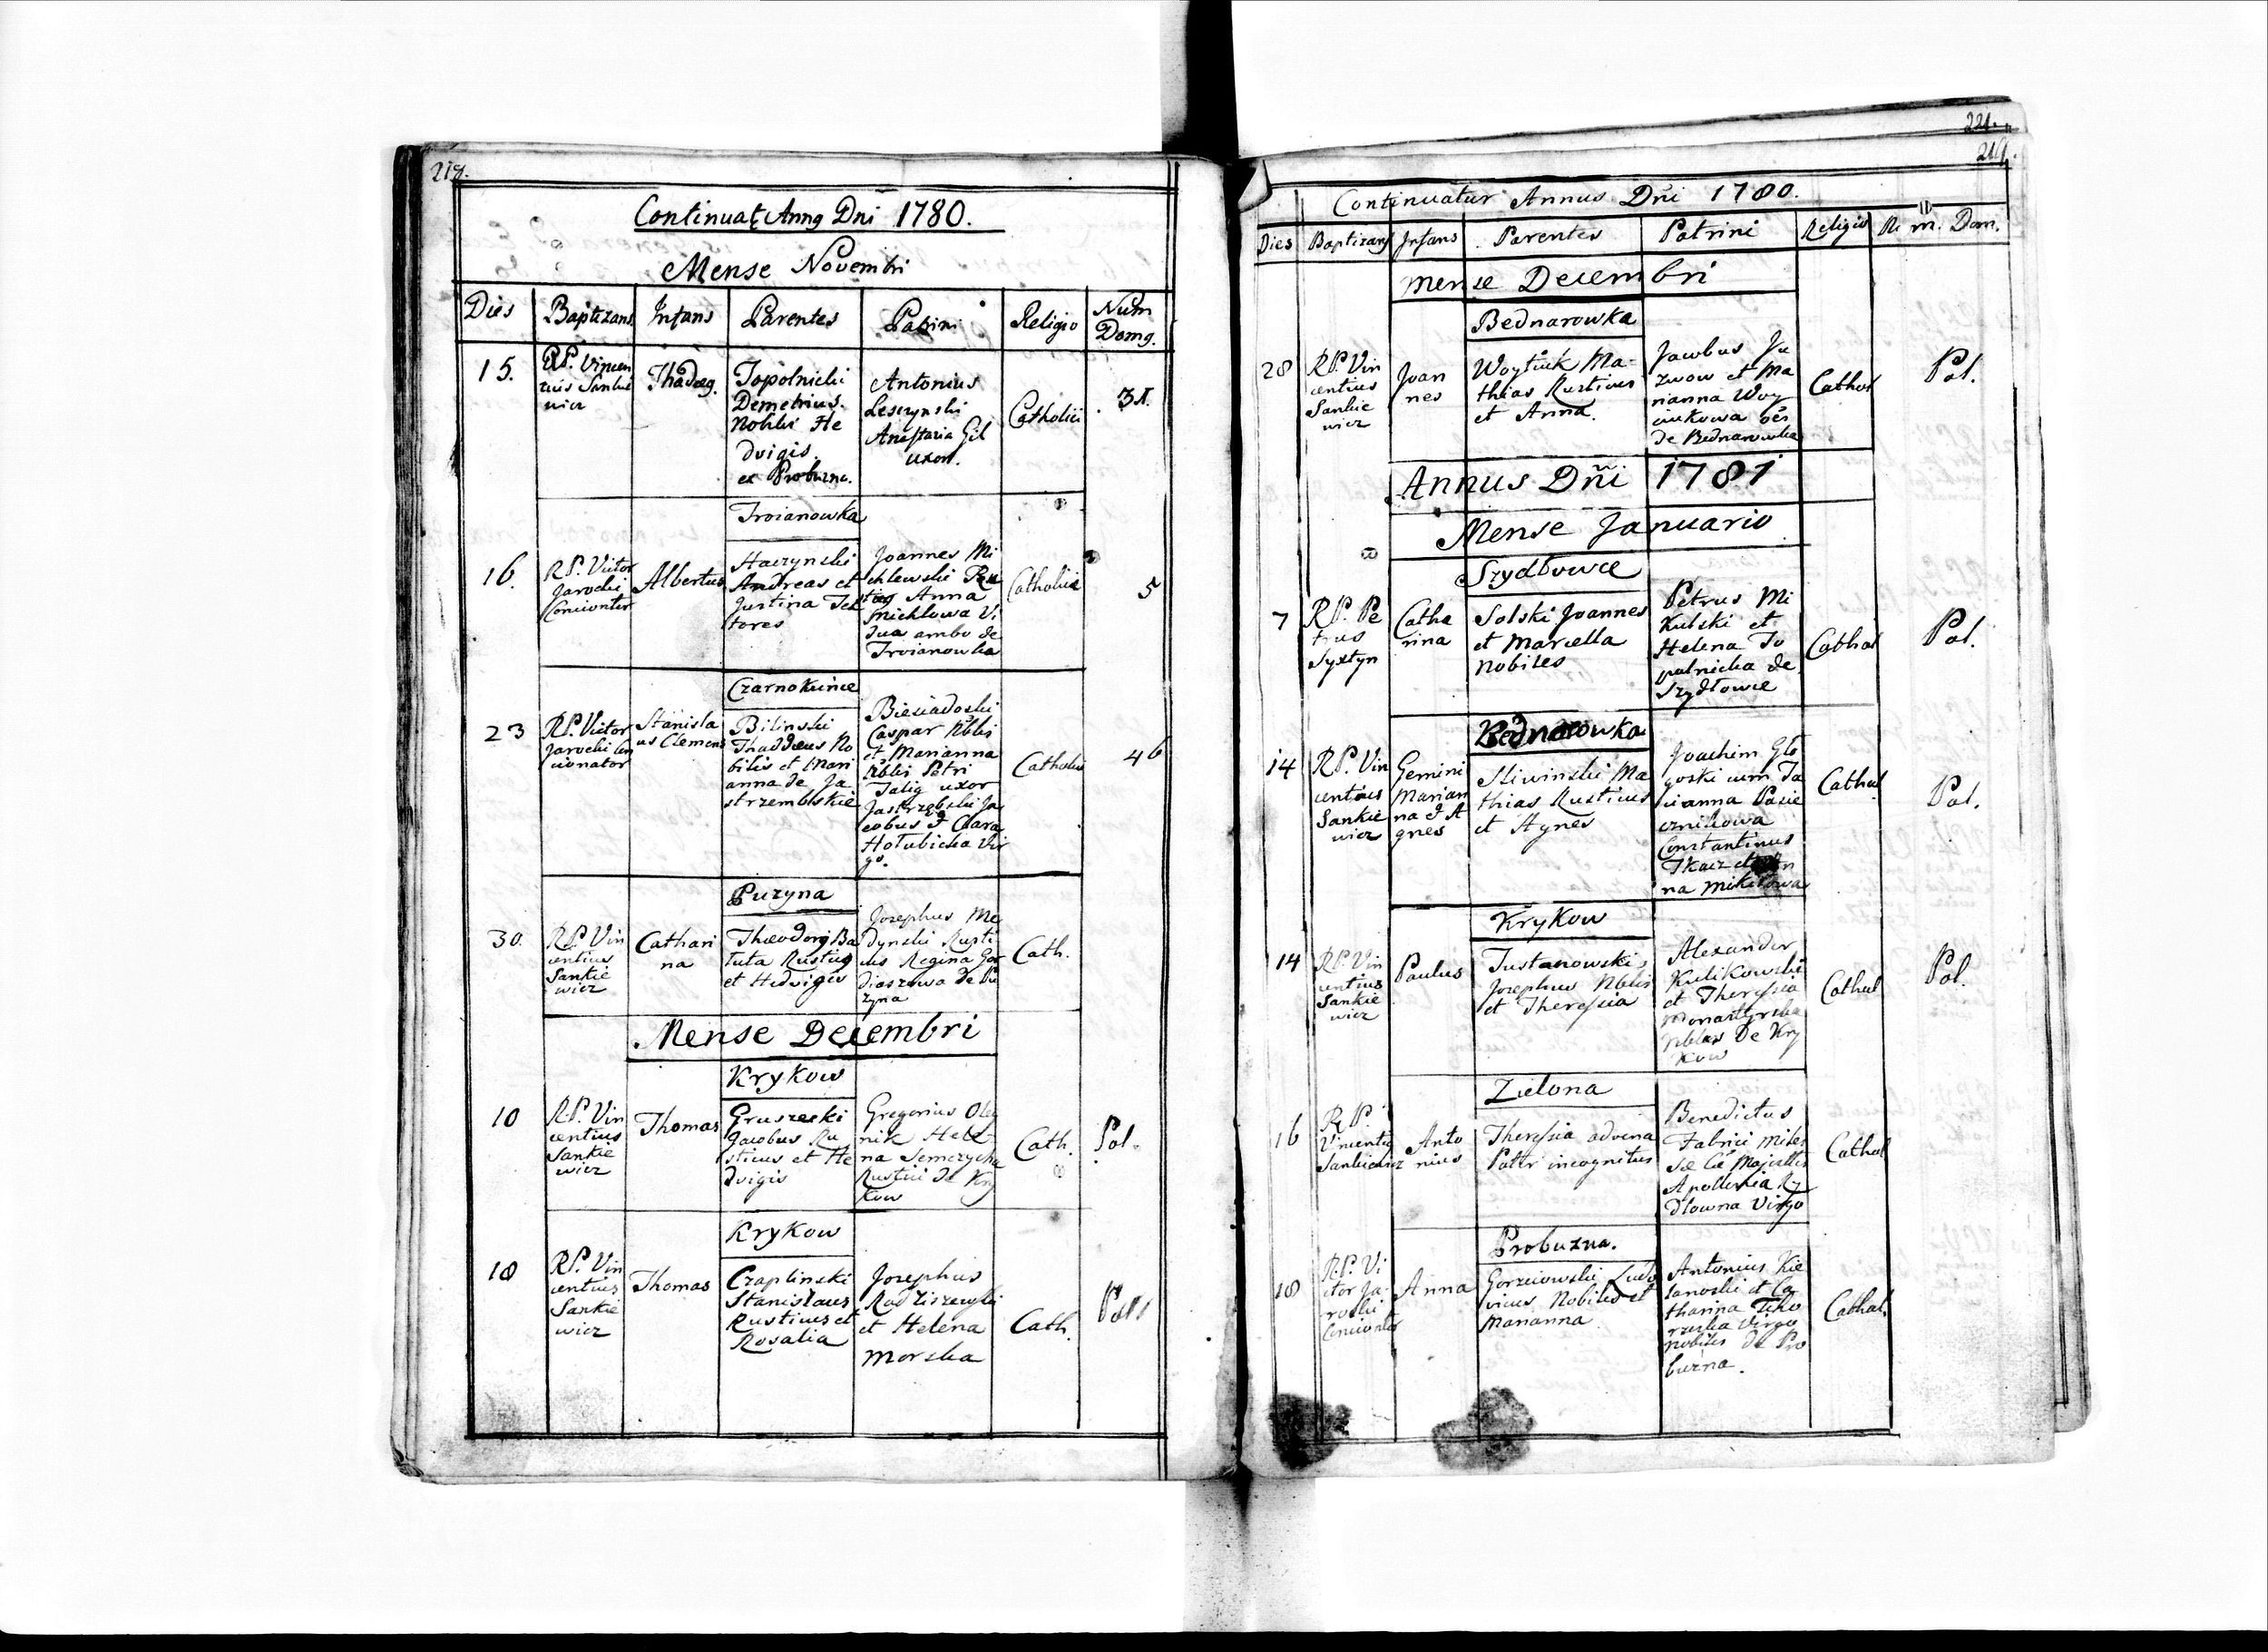 218.
Continuat Anng Dni 1780.
Mense Novembri
Dies Baptizans Infans Parentes Patrini Religio Num
Domg.
15.
RP. Vincen
tius Sankie
wicz
Thadæg.
Topolnicki
Demetrius
Nobilis He
dvigis
ex Probuzna.
Antonius
Leszczynski
Anastazia Gil
uxor.
Catholici
31.
Troianowka
16.
RP. Victor
Jarocki
Concionter
Albertus
Haczynski
Andreas et
Justina Tex
tores
Joannes Mi
chlewski Rus
ticg Anna
Michlowa Vi
dua ambo de
Troianowka
Catholica
5
Czarnokunce
23
RP. Victor
Jarocki Con
cionator
Stanisla
us Clemens
Bilinski
Thaddæus No
bilis et Mari
anna de Ja
strzembskie
Biesiadoski
Caspar Nblis
et Marianna
Nblis Petri
Talig uxor
Jastrzębski Ja
cobus et Clara
Hołubicka Vir
go.
Catholici
46
Puzyna
30.
RP. Vin
centius
Sankie
wicz
Cathari
na
Theodorg Ba
tuta Rusticg
et Hedvigis
Josephus Me
dynski Rusti
cus Regina Gor
diaszowa de Pu
zyna
Cath.
Mense Decembri
Krykow
10
RP. Vin
centius
Sankie
wicz
Thomas
Gruszecki
Jacobus Ru
sticus et He
dvigis
Gregorius Oley
nik Hele
na Semczycha
Rustici de Kry
kow
Cath.
Pol.
Krykow
18
RP. Vin
centius
Sankie
wicz
Thomas
Czaplinski
Stanislaus
Rusticus et
Rosalia
Josephus
Radziszewski
et Helena
Morska
Cath.
Pol.
221.
219.
Continuatur Annus Dñi 1780.
Dies Baptizans Infans Parentes Patrini Religio m. Dom.
Mense Decembri
Bednarowka
28
RP. Vin
centius
Sankie
wicz
Joan
nes
Woytiuk Ma-
thias Rusticus
et Anna.
Jacobus Ju
zwow et Ma
rianna Woy
ciukowa
de Bednarowka
Cathol
Pol.
Annus Dñi 1781
Mense Januario
Szydłowce
7
RP. Pe
trus
Syxtyn
Catha
rina
Solski Joannes
et Marcella
Nobiles
Petrus Mi
kulski et
Helena To
polnicka de
Szydłowce
Cathol
Pol.
Bednarowka
14
RP. Vin
centius
Sankie
wicz
Gemini
Marian
na et A
gnes
Sliwinski Ma
thias Rusticus
et Agnes
Joachim Gło
goski cum Ta
cianna Pasie
cznikowa
Constantinus
Tkacz et An
na Mikitowa
Cathol
Pol.
Krykow
14
RP. Vin
centius
Sankie
wicz
Paulus
Tustanowski
Josephus Nblis
et Theresia
Alexander
Kulikowski
et Theresia
Monastyrska
Nbles De Kry
kow
Cathol
Pol.
Zielona
16
RP.
Vincentig
Sankiewicz
Anto
nius
Theresia advena
Pater incognitus
Benedictus
Fabrici miles
Majestis
Apollonia Ry
dlowna Virgo
Cathol
Probuzna.
18
RP. Vi
ctor Ja
rocki
Concionter
Anna
Gorzciowski Ludo
vicus Nobilis et
Marianna
Antonius Kie
sanoski et Ca
tharina Tcho
rzeska Virgo
Nobiles de Pro
buzna.
Cathol.